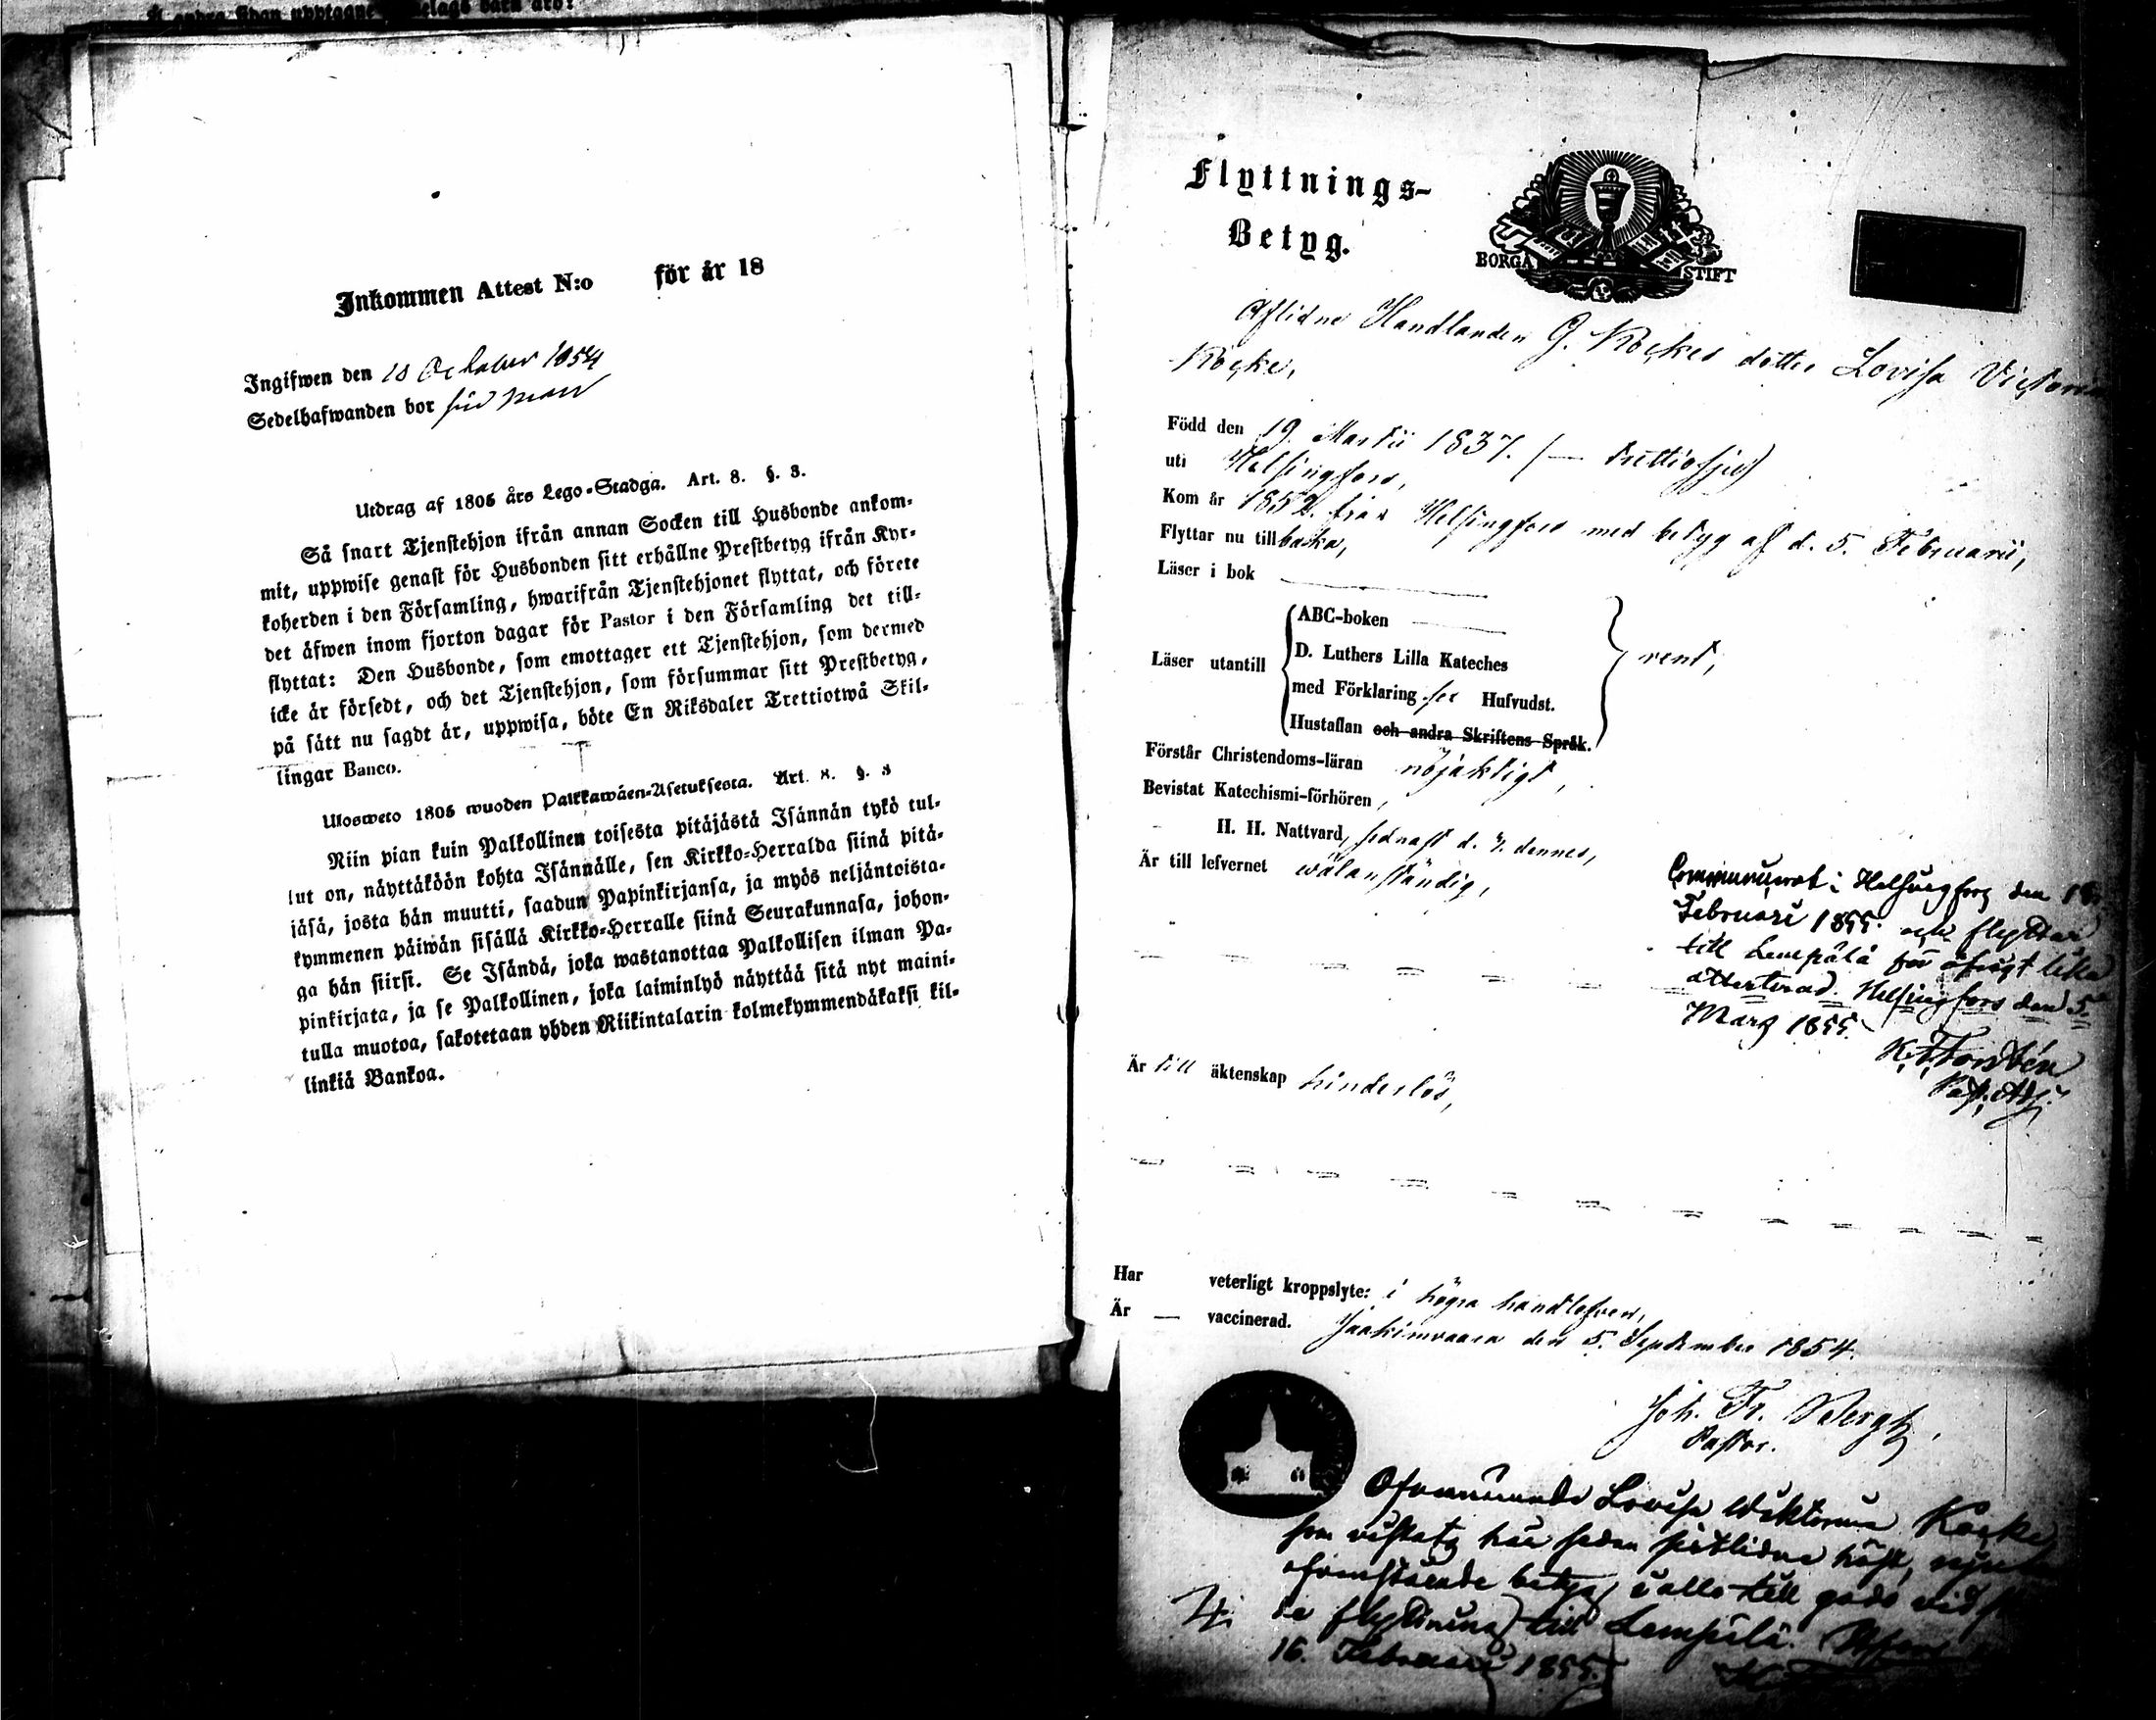 Inkommen Attest N:o för år 18
Ingifwen den 18 October 1854
Sedelhafwanden bor
Utdrag af 1805 års Lego-Stadga. Art. 8. §. 3.
Så snart Tjenstehjon ifrån annan Socken till Husbonde ankom-
mit, uppwise genast för Husbonden sitt erhållne Prestbetyg ifrån Kyr-
koherden i den Församling, hwarifrån Tjenstehjonet flyttat, och förete
det äfwen inom fjorton dagar för Pastor i den Församling det till-
flyttat: Den Husbonde, som emottager ett Tjenstehjon, som dermed
icke är försedt, och det Tjenstehjon, som försummar sitt Prestbetyg,
på sätt nu sagdt är, uppwisa, böte En Riksdaler Trettiotwå Skil-
lingar Banco.
Ulosweto 1805 wuoden Palkkawäen-Asetuksesta. Art. 8. §. 3
Niin pian kuin Palkollinen toisesta pitäjästä Isännän tykö tul-
lut on, näyttäköön kohta Isännälle, sen Kirkko-Herralda siinä pitä-
jäsä, josta hän muutti, saadun Papinkirjansa, ja myös neljäntoista-
kymmenen päiwän sisällä Kirkko-Herralle siinä Seurakunnasa, johon-
ga hän siirsi. Se Isändä, joka wastanottaa Palkollisen ilman Pa-
pinkirjata, ja se Palkollinen, joka laiminlyö näyttää sitä nyt maini-
tulla muotoa, sakotetaan yhden Riikintalarin kolmekymmendäkaksi kil-
linkiä Bankoa.
Flyttnings-
Betyg.
BORGÅ STIFT
Aflidne Handlanden G. Kockes dotter Lovisa Victoria
Kocke,
Född den 19 Martii 1837. (— trettiosju)
uti Helsingfors,
Kom år 1852 från Helsingfors med betyg af d. 5. Februarii,
Flyttar nu tillbaka,
Läser i bok
Läser utantill
ABC-boken
D. Luthers Lilla Kateches
med Förklaring sex Hufvudst.
Hustaflan och andra Skriftens Språk.
rent,
Förstår Christendoms-läran nöjaktigt,
Bevistat Katechismi-förhören,
H. H. Nattvard, sednast d. 3. dennes,
Är till lefvernet wälanständig,
Communicerat i Helsingfors den 18
Februari 1855 och flyttar
till Lempälä för öfrigt lika
attesterad. Helsingfors den 5
Mars 1855.
K. Forstén
Past. Adj.
Är till äktenskap hinderlös,
Har veterligt kroppslyte: i högra handlofven,
Är — vaccinerad. Jaakimvaara den 5. September 1854.
Joh. Fr. Bergh,
Pastor.
Ofvannämnde Lovisa Wiktorina Kocke
som vistats här sedan sistlidne höst,
ofvanstående betyg i allo till godo vid
flyttning till Lempälä.
16. Februari 1855.